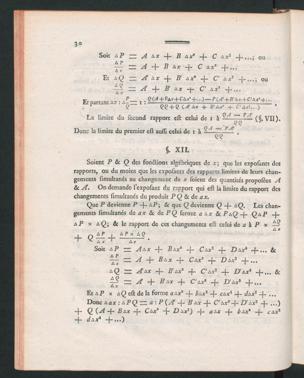 30
Soit △P = A△x + B△x² + C△x³ + ...; ou
△P/△x = A + B△x + C△x² ...
Et △Q = A△x + B△x² + C△x³ + ...; ou
△Q/△x = A + B△x + C△x² + ...
Et partant △x : △
La limite du second rapport est celui de 1 à (§. VII).
Donc la limite du premier est aussi celui de 1 à
§. XII.
Soient P & Q des fonctions algébriques de x; que les exposants des
rapports, ou du moins que les exposants des rapports limites de leurs chan-
gements simultanés au changement de x soient des quantités proposées A
& A. On demande l'exposant du rapport qui est la limite du rapport des
changements simultanés du produit PQ & de △x.
Que P devienne P + △P; & que Q devienne Q + △Q. Les chan-
gements simultanés de △x & de PQ seront △x & P△Q + Q△P +
△P × △Q; & le rapport de ces changements est celui de 1 à P × △Q/△x
+ Q △P/△x + △P × △Q/△x.
Soit △P = A△x + B△x² + C△x³ + D△x⁴ + ... &
△P/△x = A + B△x + C△x² + D△x³ + ...
△Q = A△x + B△x² + C△x³ + D△x⁴ + ... &
△Q/△x = A + B△x + C△x² + D△x³ + ...
Et △P × △Q est de la forme a△x² + b△x³ + c△x⁴ + d△x⁵ + ...
Donc △x : △PQ = 1 : P(A + B△x + C△x² + D△x³ + ...)
+ Q (A + B△x + C△x² + D△x³) + a△x + b△x² + c△x³
+ d△x⁴ + ...)